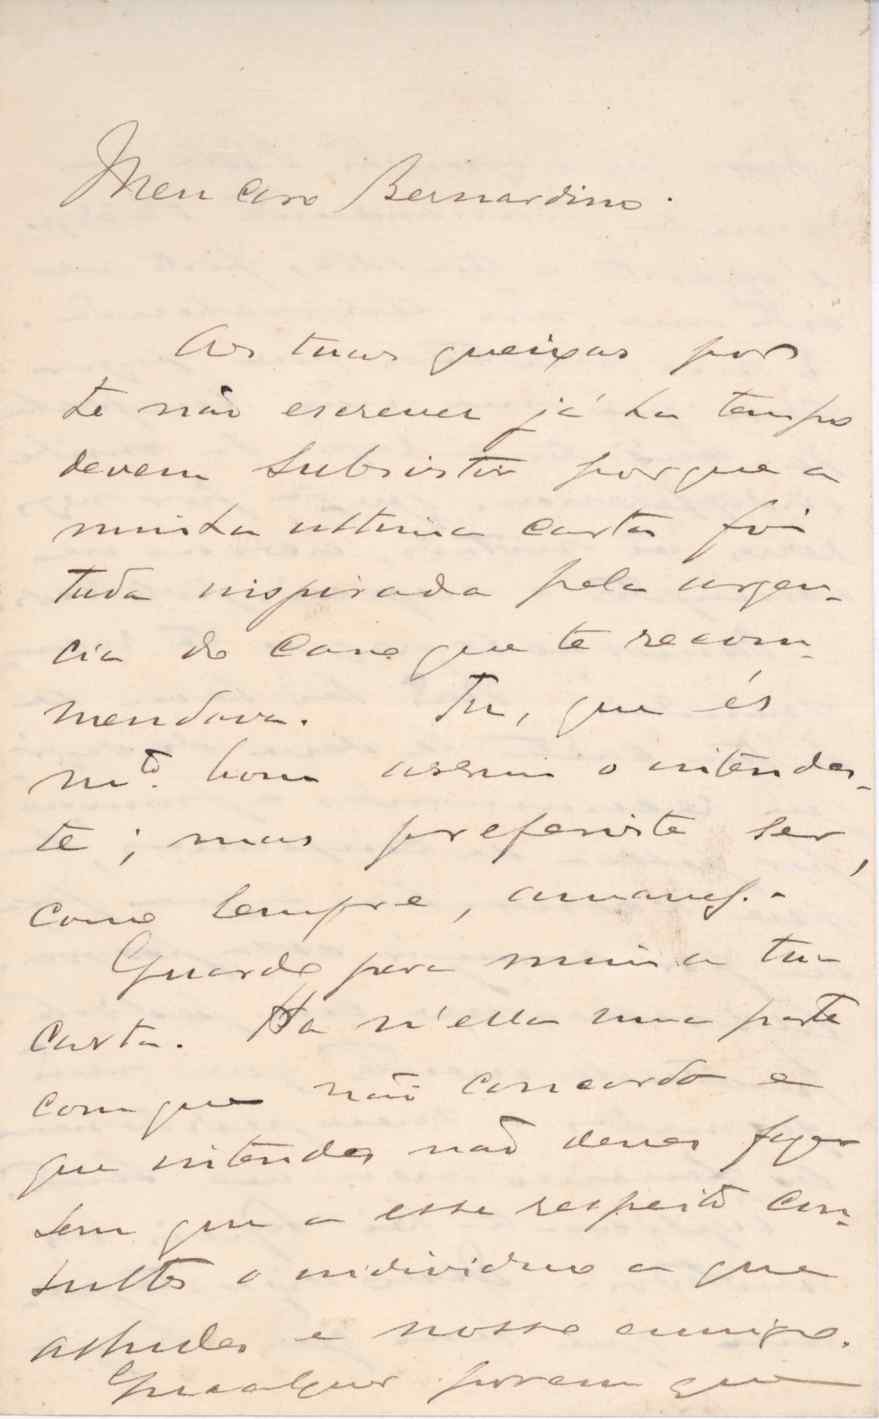 Meu caro Bernardino.
As tuas queixas por
te não escrever já ha tempo
devem subsistir porque a
minha ultima carta foi
tuda inspirada pela urgen-
cia do caso que te recom-
mendava. Tu, que és
mto. bom assim o intendes-
te; mas preferiste ser,
como sempre,
Guardo para mim a tua
carta. Ha n'ella uma parte
com que não concordo e
que intendo não deves fazer
sem que a esse respeito con-
sultes o individuo a que
alludes e nosso amigo.
Qualquer porem que